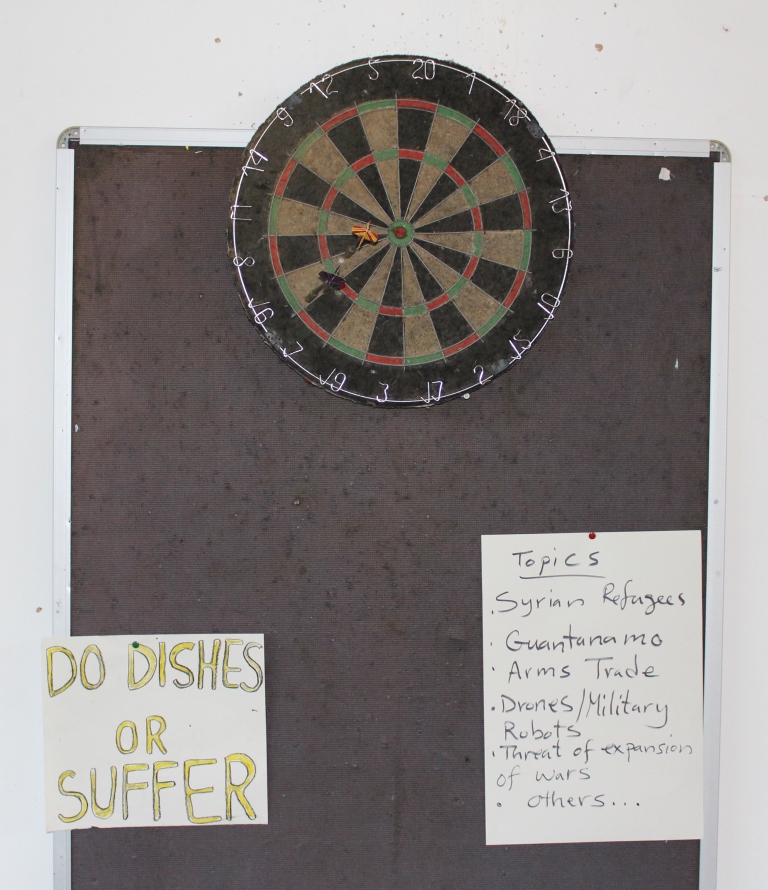 20
1
18
4
13
6
10
15
2
17
3
19
7
16
8
11
14
9
12
5
Topics
. Syrian Refugees
. Guantanamo
. Arms Trade
. Drones/Military
Robots
. Threat of expansion
of wars
. others...
DO DISHES
OR
SUFFER